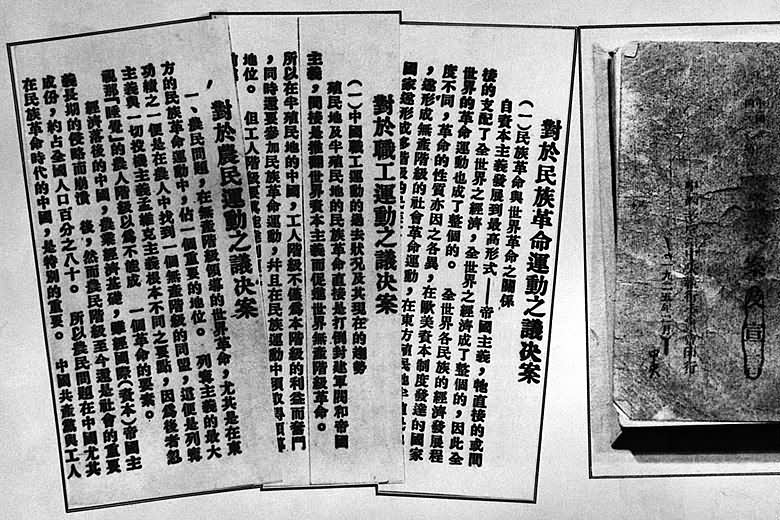 對於民族革命運動之議决案
(一)民族革命與世界革命之關係
自資本主義發展到最高形式——帝國主義,牠直接的或間
接的支配了全世界之經濟,全世界之經濟成了整個的,因此全
世界的革命運動也成了整個的。 全世界各民族的經濟發展程
度不同,革命的性質亦因之各異,在歐美資本制度發達的國家
,遂形成無產階級的社會革命運動,在東方殖民地半殖民地
國家遂形成多階級的民
對於職工運動之議决案
(一)中國職工運動的過去狀况及其現在的趨勢
殖民地及半殖民地的民族革命直接是打倒封建軍閥和帝國
主義,間接是推翻世界資本主義而促進世界無產階級革命。
所以在半殖民地的中國,工人階級不僅爲本階級的利益而奮鬥
,同時還要參加民族革命運動,并且在民族運動中須取得領導
地位。 但工人階級要
對於農民運動之議决案
一、農民問題,在無產階級領導的世界革命,尤其是在東
方的民族革命運動中,佔一個重要的地位。 列寧主義的最大
功績之一便是在農人中找到一個無產階級的同盟,這便是列寧
主義與一切投機主義孟維克主義根本不同之要點,因爲後者忽
視那「睡覺」的農人階級以爲不能成 一個革命的要素。
經濟落後的中國,農業經濟基礎,雖經國際(資本)帝國主
義長期的侵略而崩潰 後,然而農民階級至今還是社會的重要
成份,約占全國人口百分之八十。 所以農民問題在中國尤其
在民族革命時代的中國,是特別的重要。 中國共產黨與工人
一九二五年一月